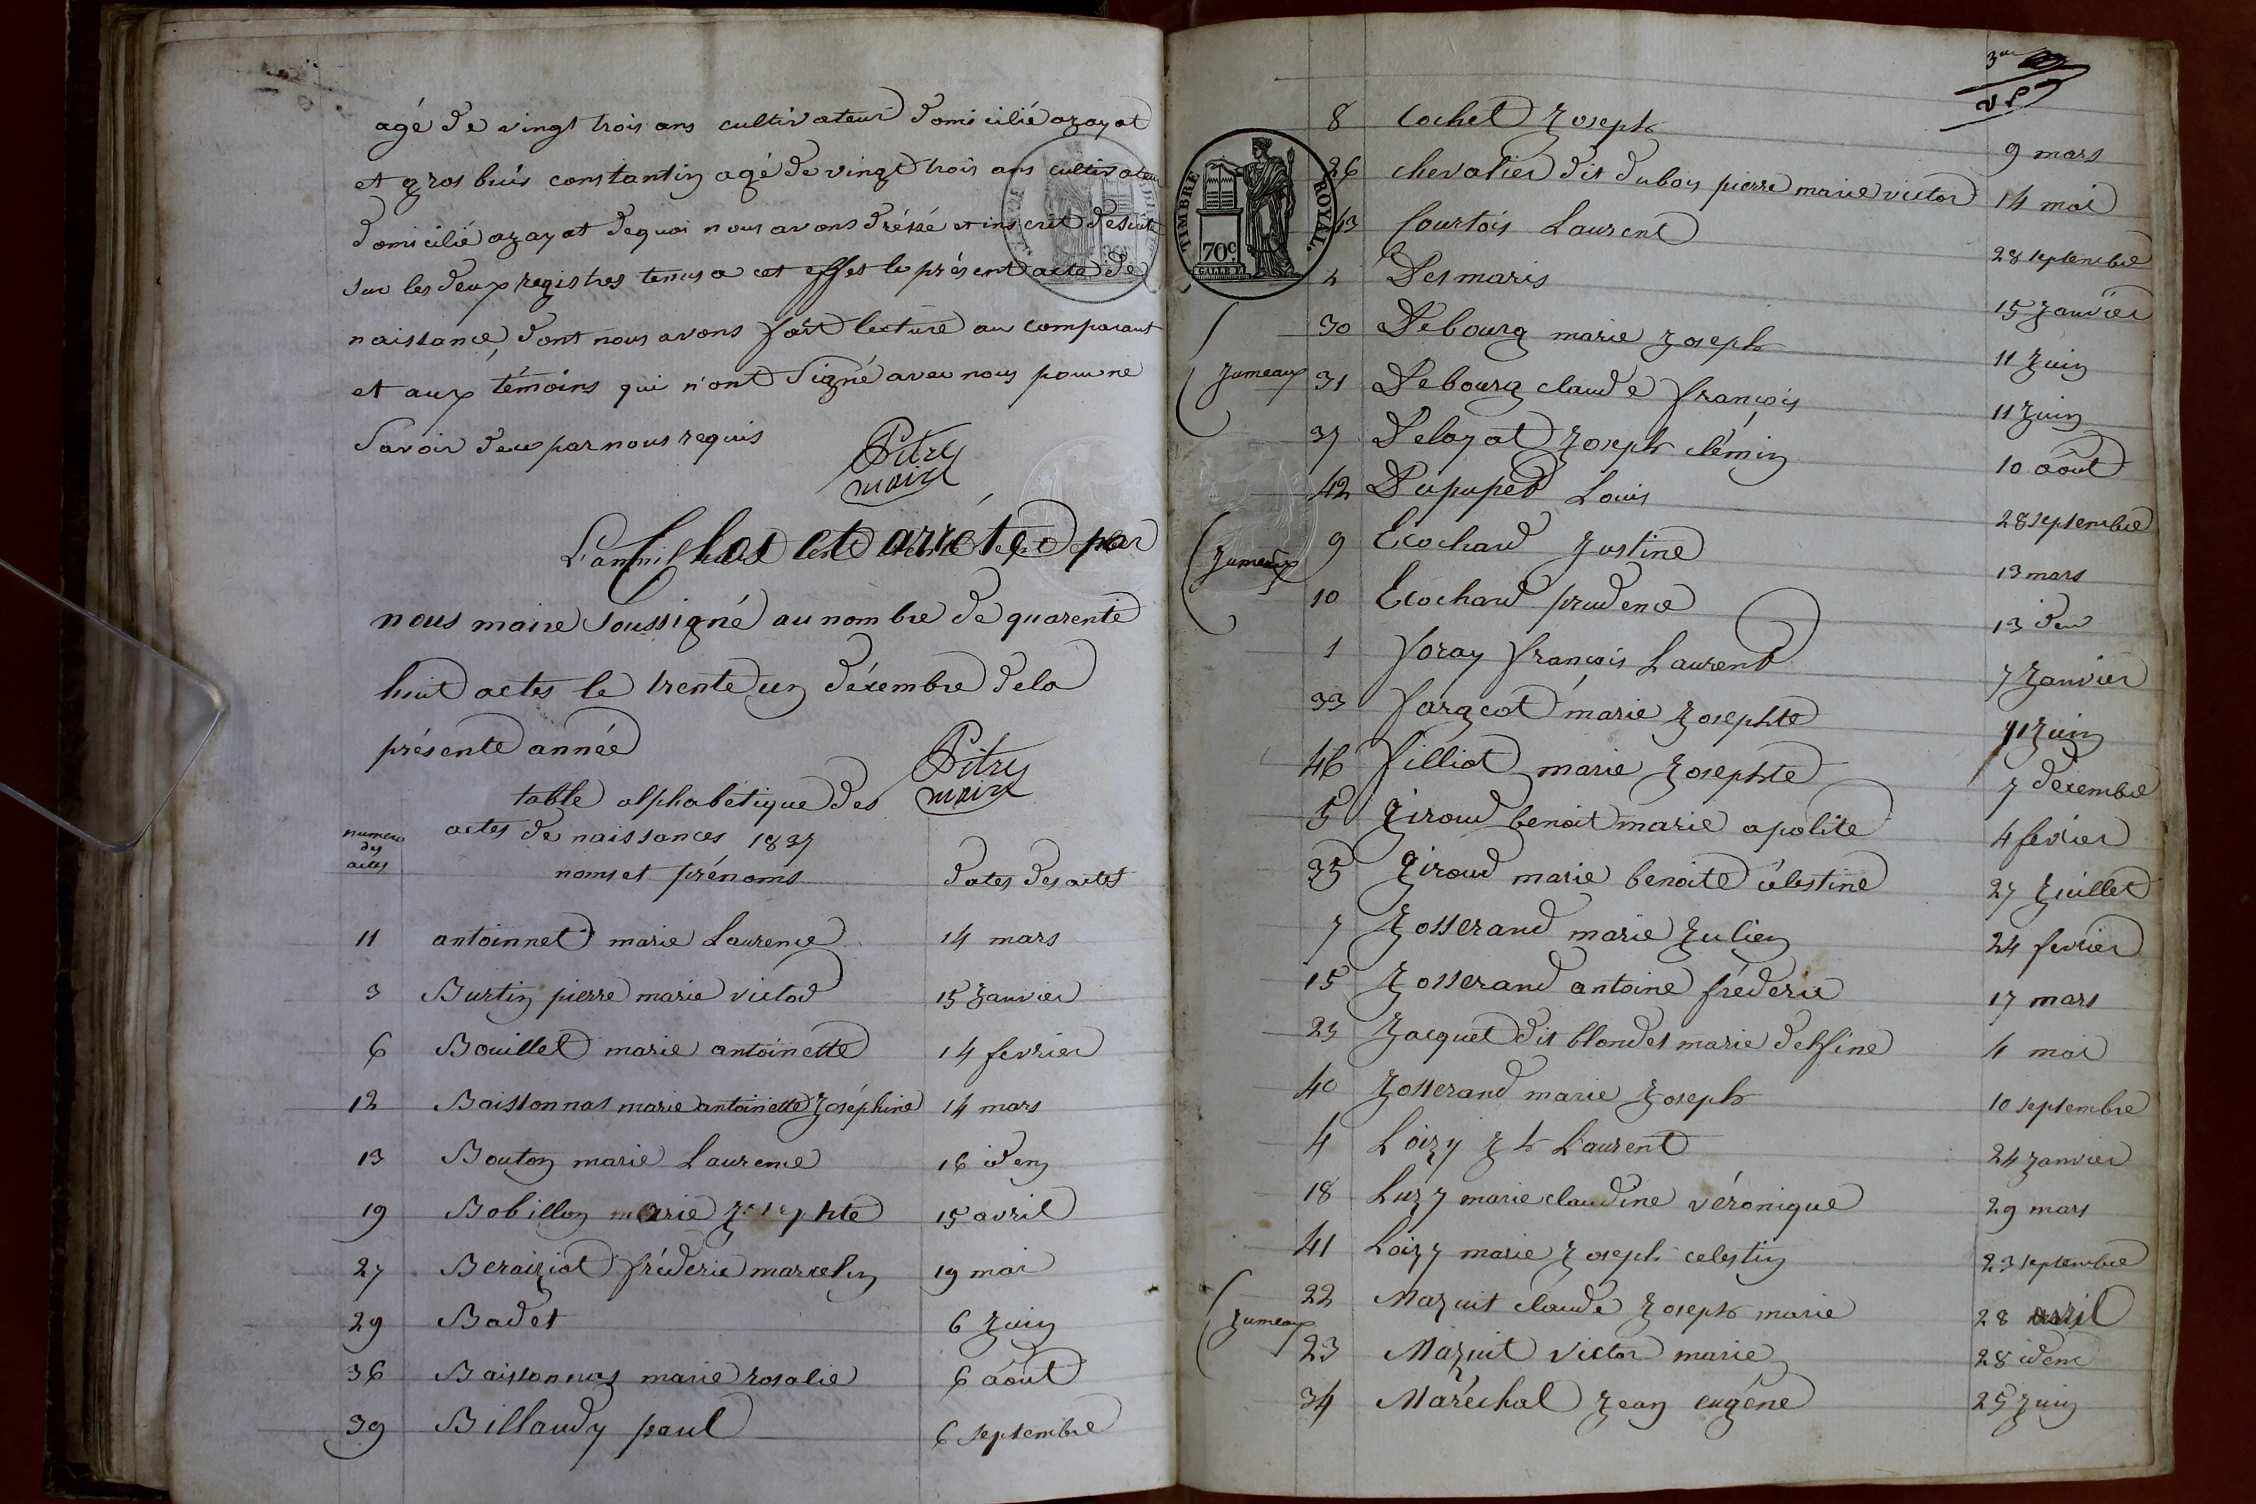 agé de vingt trois ans cultivateur domicilié azayat
et gros buis constantin agé de vingt trois ans cultivateur
domicilié azayat dequoi nous avons dréssé et inscrit desuite
sur les deux registres tenus a cet effet le présent acte de
naissance, dont nous avons fait lecture au comparant
et aux témoins qui n'ont signé avec nous pour ne
savoir deux par nous requis
Pitre
maire
L'an mil Clos et arrété par
nous maire soussigné au nombre de quarente
huit actes le trente un décembre dela
présente année
Pitre
maire
table alphabétique des
actes de naissances 1837
numero des actes noms et prénoms dates des actes
11 antoinnet marie Laurence 14 mars
3 Burtin pierre marie victor 15 Janvier
6 Bouillet marie antoinette 14 fevrier
12 Baissonnas marie antoinette Joséphine 14 mars
13 Bouton marie Laurence 16 idem
19 Bobillon marie Josephte 15 avril
27 Beraiziat fréderic marcelin 19 mai
29 Badet 6 Juin
36 Baissonnas marie rosalie 6 août
39 Billaudy paul 6 septembre
3me
TIMBRE ROYAL
70c
8 Cochet Joseph 9 mars
26 chevalier dit dubois pierre marie victor 14 mai
43 Courtois Laurent 28 septembre
2 Desmaris 15 Janvier
30 Debourg marie Joseph 11 Juin
Jumeaux 31 Debourg claude françois 11 Juin
37 Delayat Joseph clémin 10 août
42 Dupupet Louis 28 septembre
9 Ecochard Justine 13 mars
Jumeaux
10 Ecochard prudence 13 idem
1 foray françois Laurent 7 Janvier
33 fargeot marie Josephte 11 Juin
46 filliot marie Josephte 7 décembre
5 giroud benoit marie apolite 4 février
35 giroud marie benoite célestine 27 Juillet
7 Josserand marie Julien 24 fevrier
15 Josserand antoine fréderic 17 mars
23 Jacquet dit blondet marie delfine 4 mai
40 Josserand marie Joseph 10 septembre
4 Loizy Jh Laurent 24 Janvier
18 Luzy marie claudine véronique 29 mars
41 Loizy marie Joseph celestin 23 septembre
22 Mazuit claude Joseph marie 28 avril
Jumeaux
23 Mazuit victor marie 28 idem
34 Maréchal Jean eugéne 25 Juin